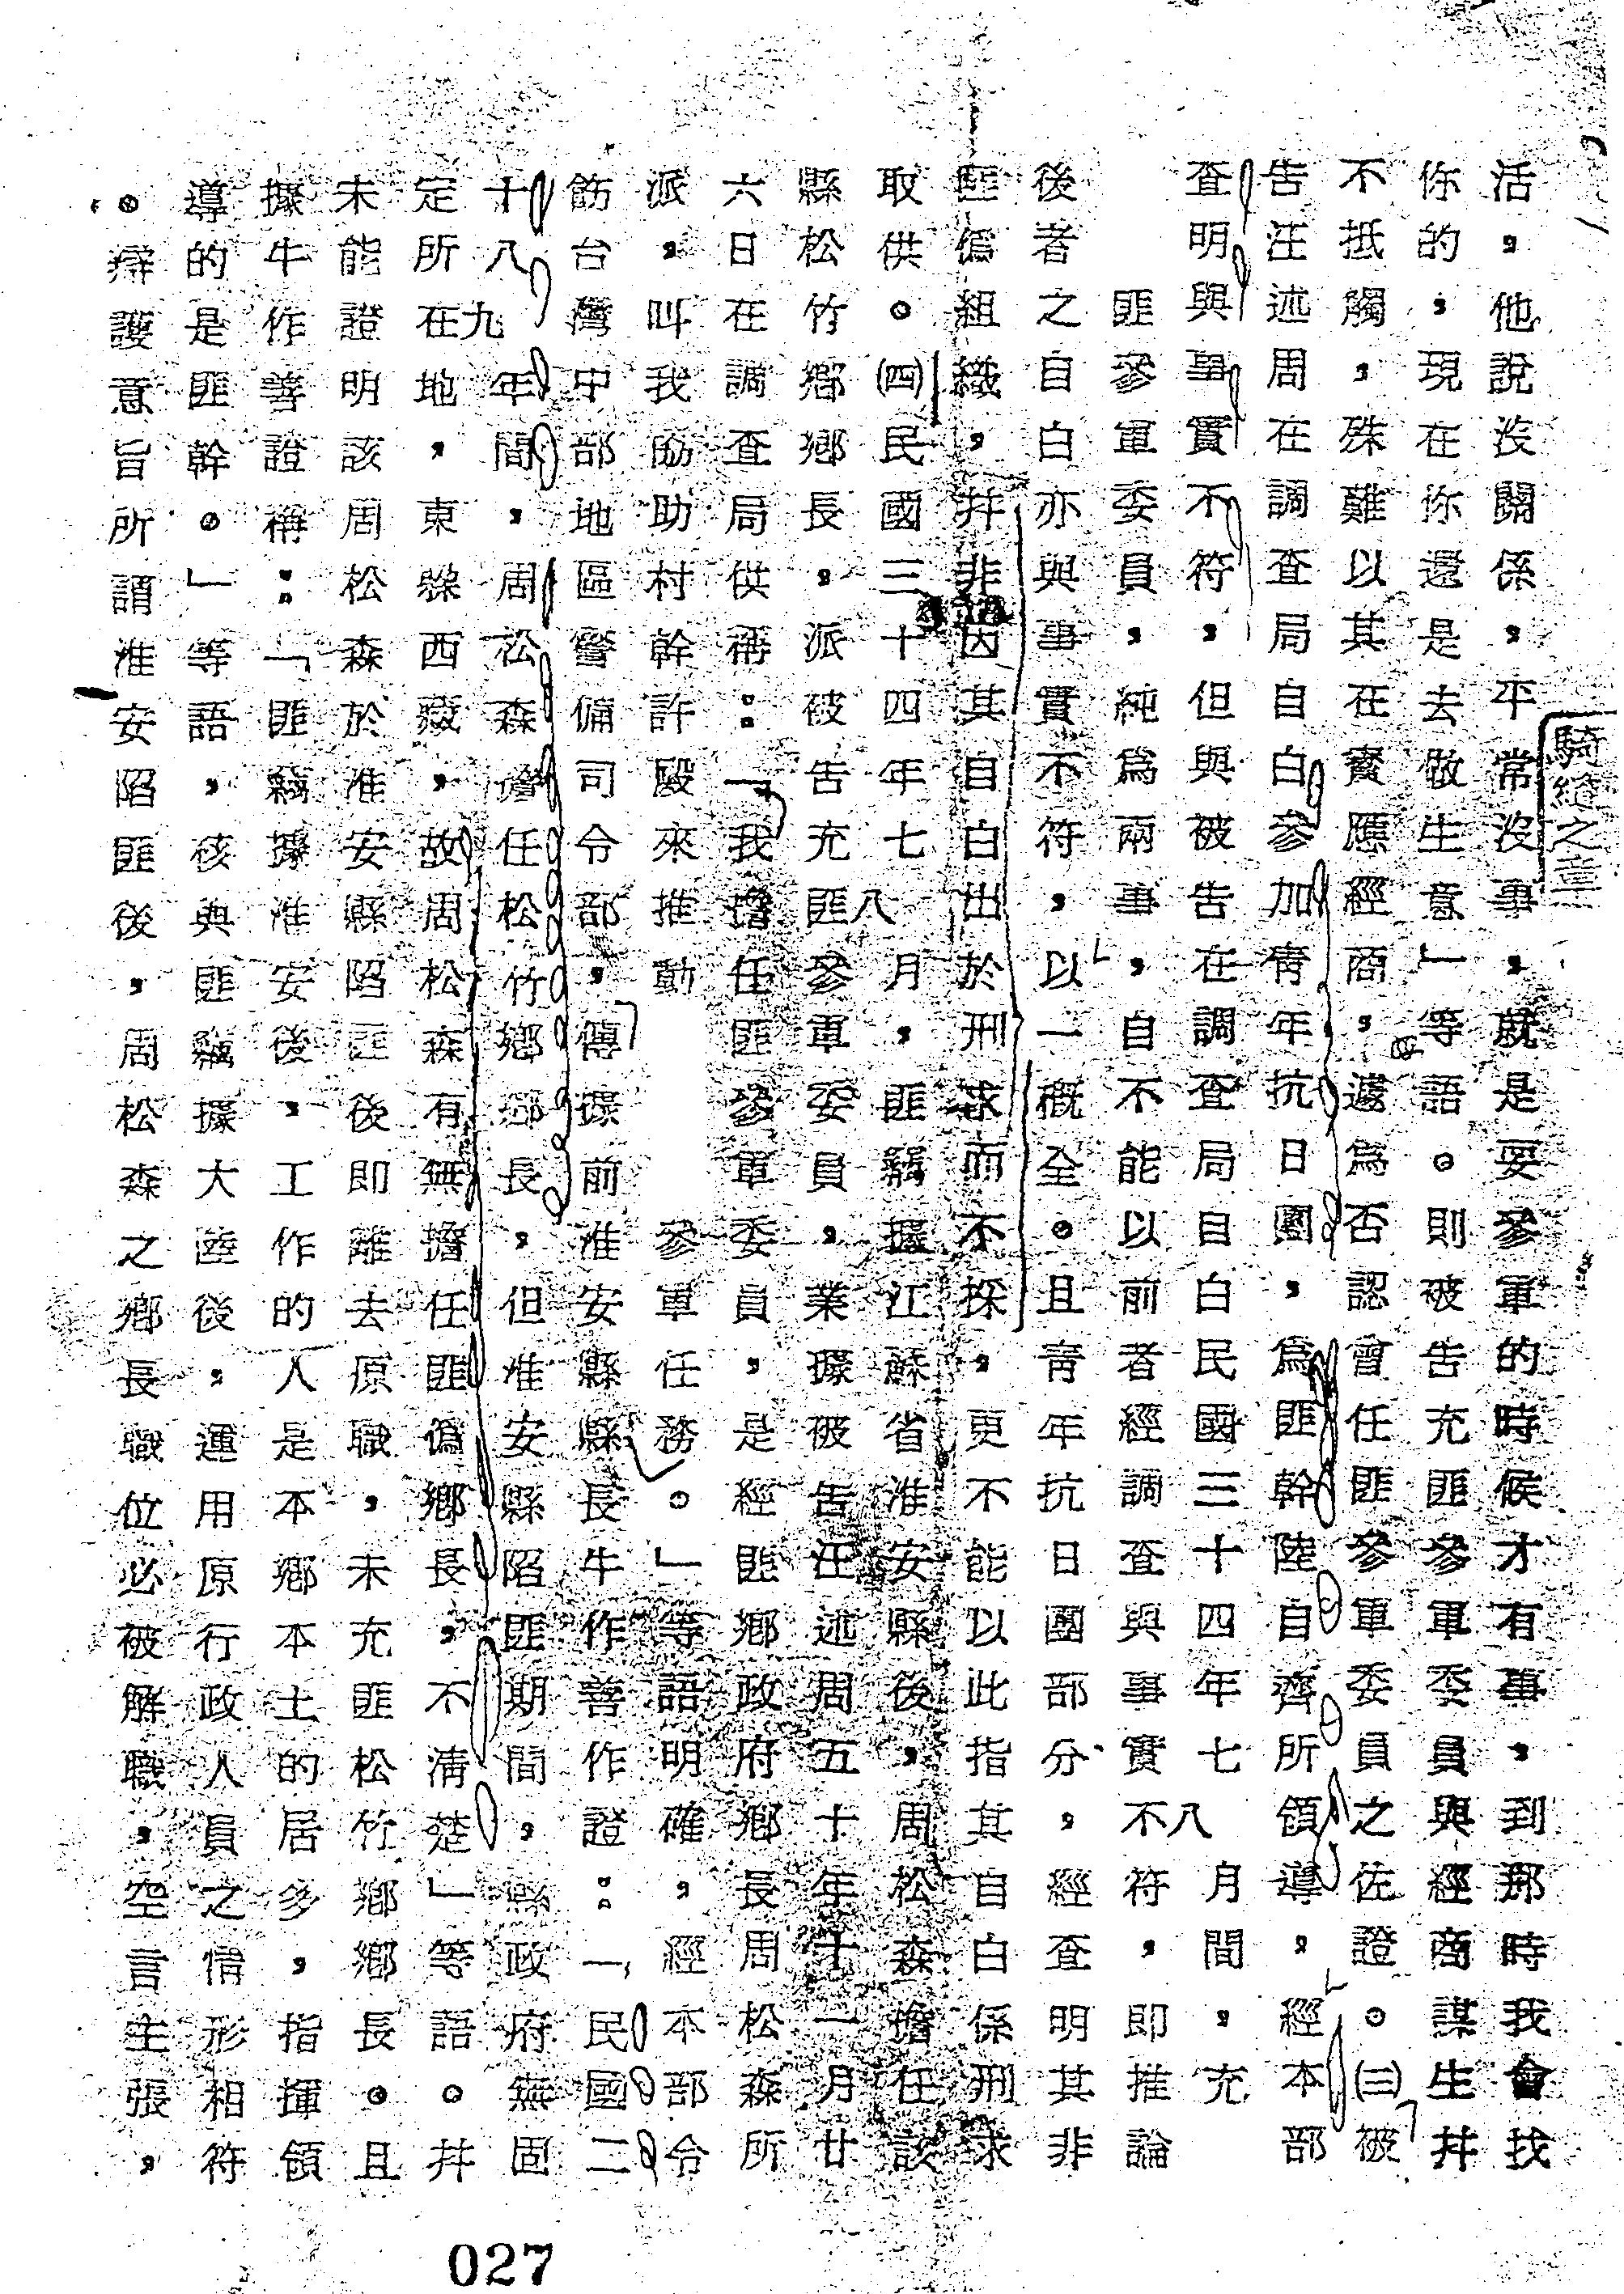 活，他說沒關係，平常沒事，就是要參軍的時候才有事，到那時我會找
你的，現在你還是去做生意」等語。則被告充匪參軍委員，與經商謀生并
不抵觸，殊難以其在寶應經商，遽為否認曾任匪參軍委員之佐證。㈢被
告汪述周在調查局自白參加青年抗日團，為匪幹陸自齊所領導，經本部
查明與事實不符，但與被告在調查局自白民國三十四年七八月間，充
匪參軍委員，純為兩事，自不能以前者經調查與事實不符，即推論
後者之自白亦與事實不符，以一概全。且青年抗日團部分，經查明其非
匪偽組織，并非因其自白出於刑求而不採，更不能以此指其自白係刑求
取供。㈣民國三十四年七八月，匪竊據江蘇省淮安縣後，周松森擔任該
縣松竹鄉鄉長，派被告充匪參軍委員，業據被告汪述周五十年十一月廿
六日在調查局供稱：「我擔任匪參軍委員，是經匪鄉政府鄉長周松森所
派，叫我協助村幹許毆來推動參軍任務。」等語明確，經本部令
飭台灣中部地區警備司令部，傳據前淮安縣縣長牛作善作證：「民國二
十八九年間，周松森擔任松竹鄉鄉長，但淮安縣陷匪期間，縣政府無固
定所在地，東躲西藏，故周松森有無擔任匪偽鄉長，不清楚」等語。并
未能證明該周松森於淮安縣陷匪後即離去原職，未充匪松竹鄉鄉長。且
據牛作善證稱：「匪竊據淮安後，工作的人是本鄉本土的居多，指揮領
導的是匪幹。」等語，核與匪竊據大陸後，運用原行政人員之情形相符
。辯護意旨所謂淮安陷匪後，周松森之鄉長職位必被解職，空言主張，
騎縫之章
027